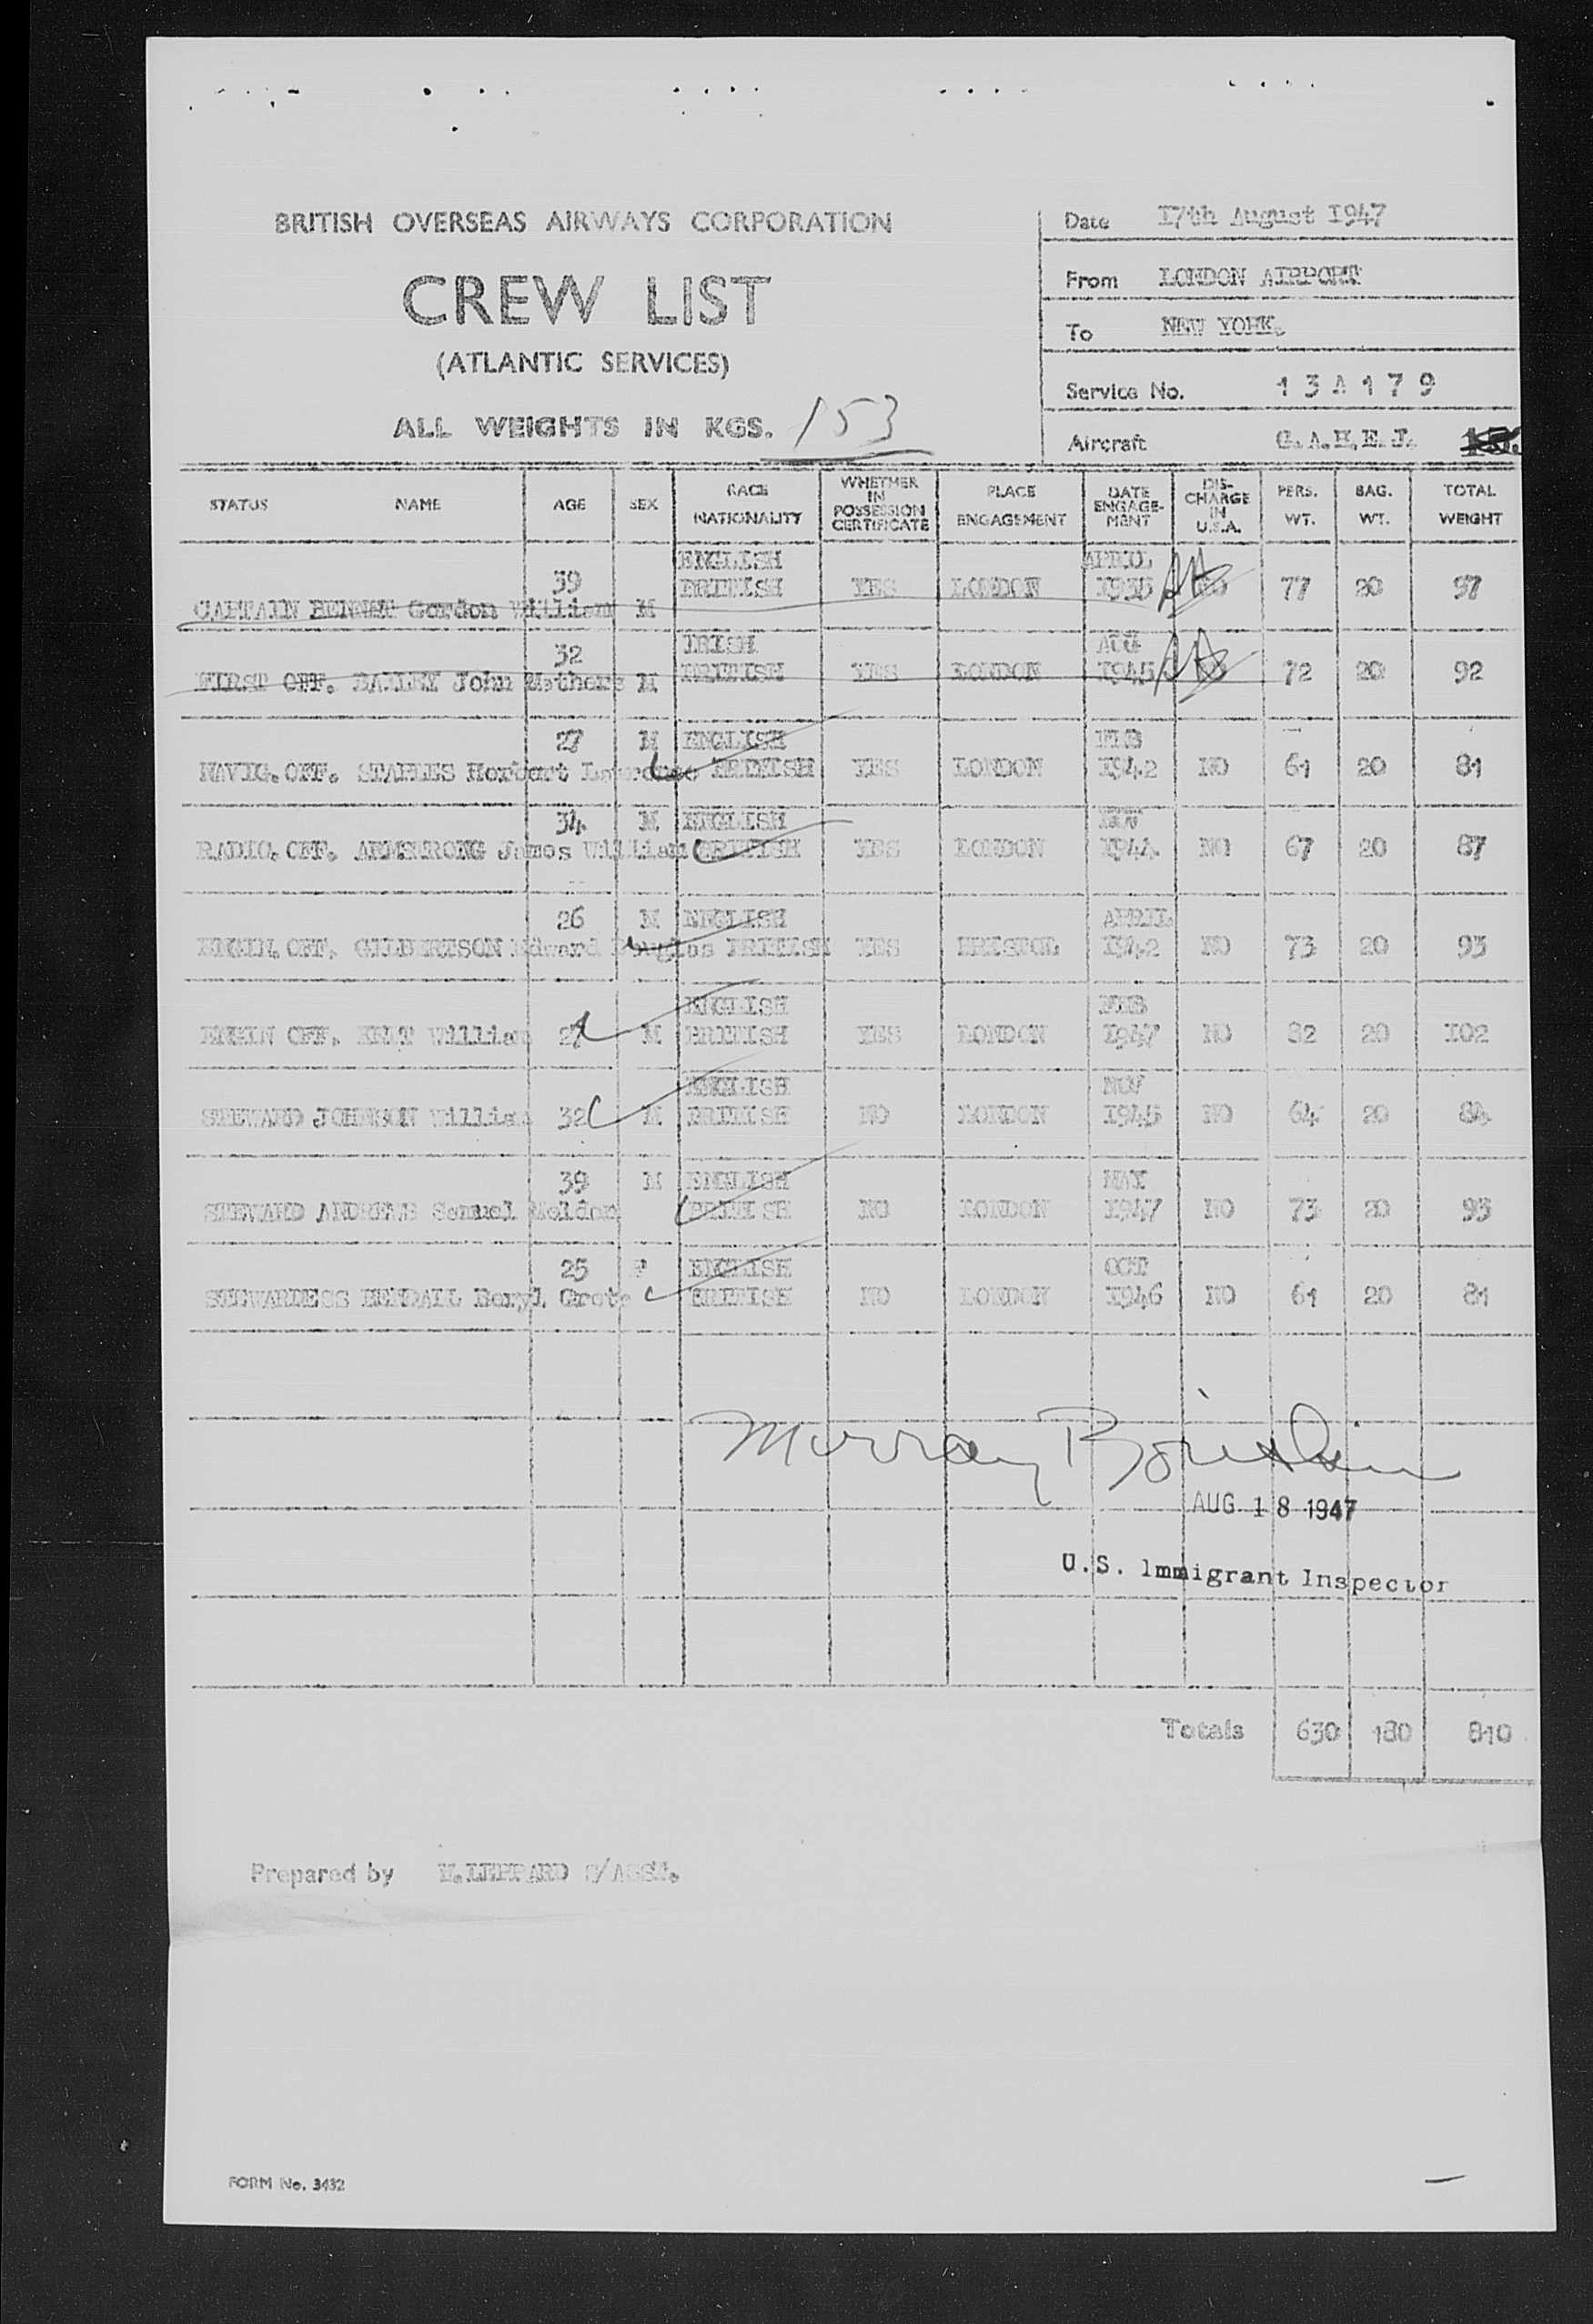 BRITISH OVERSEAS AIRWAYS CORPORATION
CREW LIST
(ATLANTIC SERVICES)
ALL WEIGHTS IN KGS. 153
Date 17th August 1947
From LONDON AIRPORT
To NEW YORK.
Service No. 13A179
Aircraft G.A.H.E.J.
STATUS NAME AGE SEX RACE NATIONALITY WHETHER IN POSSESSION CERTIFICATE PLACE ENGAGEMENT DATE ENGAGE-MENT DIS-CHARGE IN U.S.A. PERS. WT. BAG. WT. TOTAL WEIGHT
CAPTAIN BENNET Gordon William 39 M ENGLISH BRITISH YES LONDON APRIL 1935 NO 77 20 97
FIRST OFF. BAILEY John Mathers 32 M IRISH BRITISH YES LONDON AUG 1945 NO 72 20 92
NAVIG.OFF. STAPLES Herbert Lawrence 27 M ENGLISH BRITISH YES LONDON FEB 1942 NO 61 20 81
RADIO.OFF. ARMSTRONG James William 34 M ENGLISH BRITISH YES LONDON 1944 NO 67 20 87
ENGIN.OFF. GILBERTSON Edward Douglas 26 M ENGLISH BRITISH YES BRISTOL APRIL 1942 NO 73 20 93
ENGIN OFF. KNIT William 27 M ENGLISH BRITISH YES LONDON FEB 1947 NO 82 20 102
STEWARD JOHNSON William 32 M ENGLISH BRITISH NO LONDON NOV 1945 NO 64 20 84
STEWARD ANDREWS Samuel Weldon 39 M ENGLISH BRITISH NO LONDON MAY 1947 NO 73 20 93
STEWARDESS KENDALL Beryl Grote 25 F ENGLISH BRITISH NO LONDON OCT 1946 NO 61 20 81
Murray
AUG 18 1947
U.S. Immigrant Inspector
Totals 630 180 810
Prepared by W.LEPPARD S/ASST.
FORM No. 3432